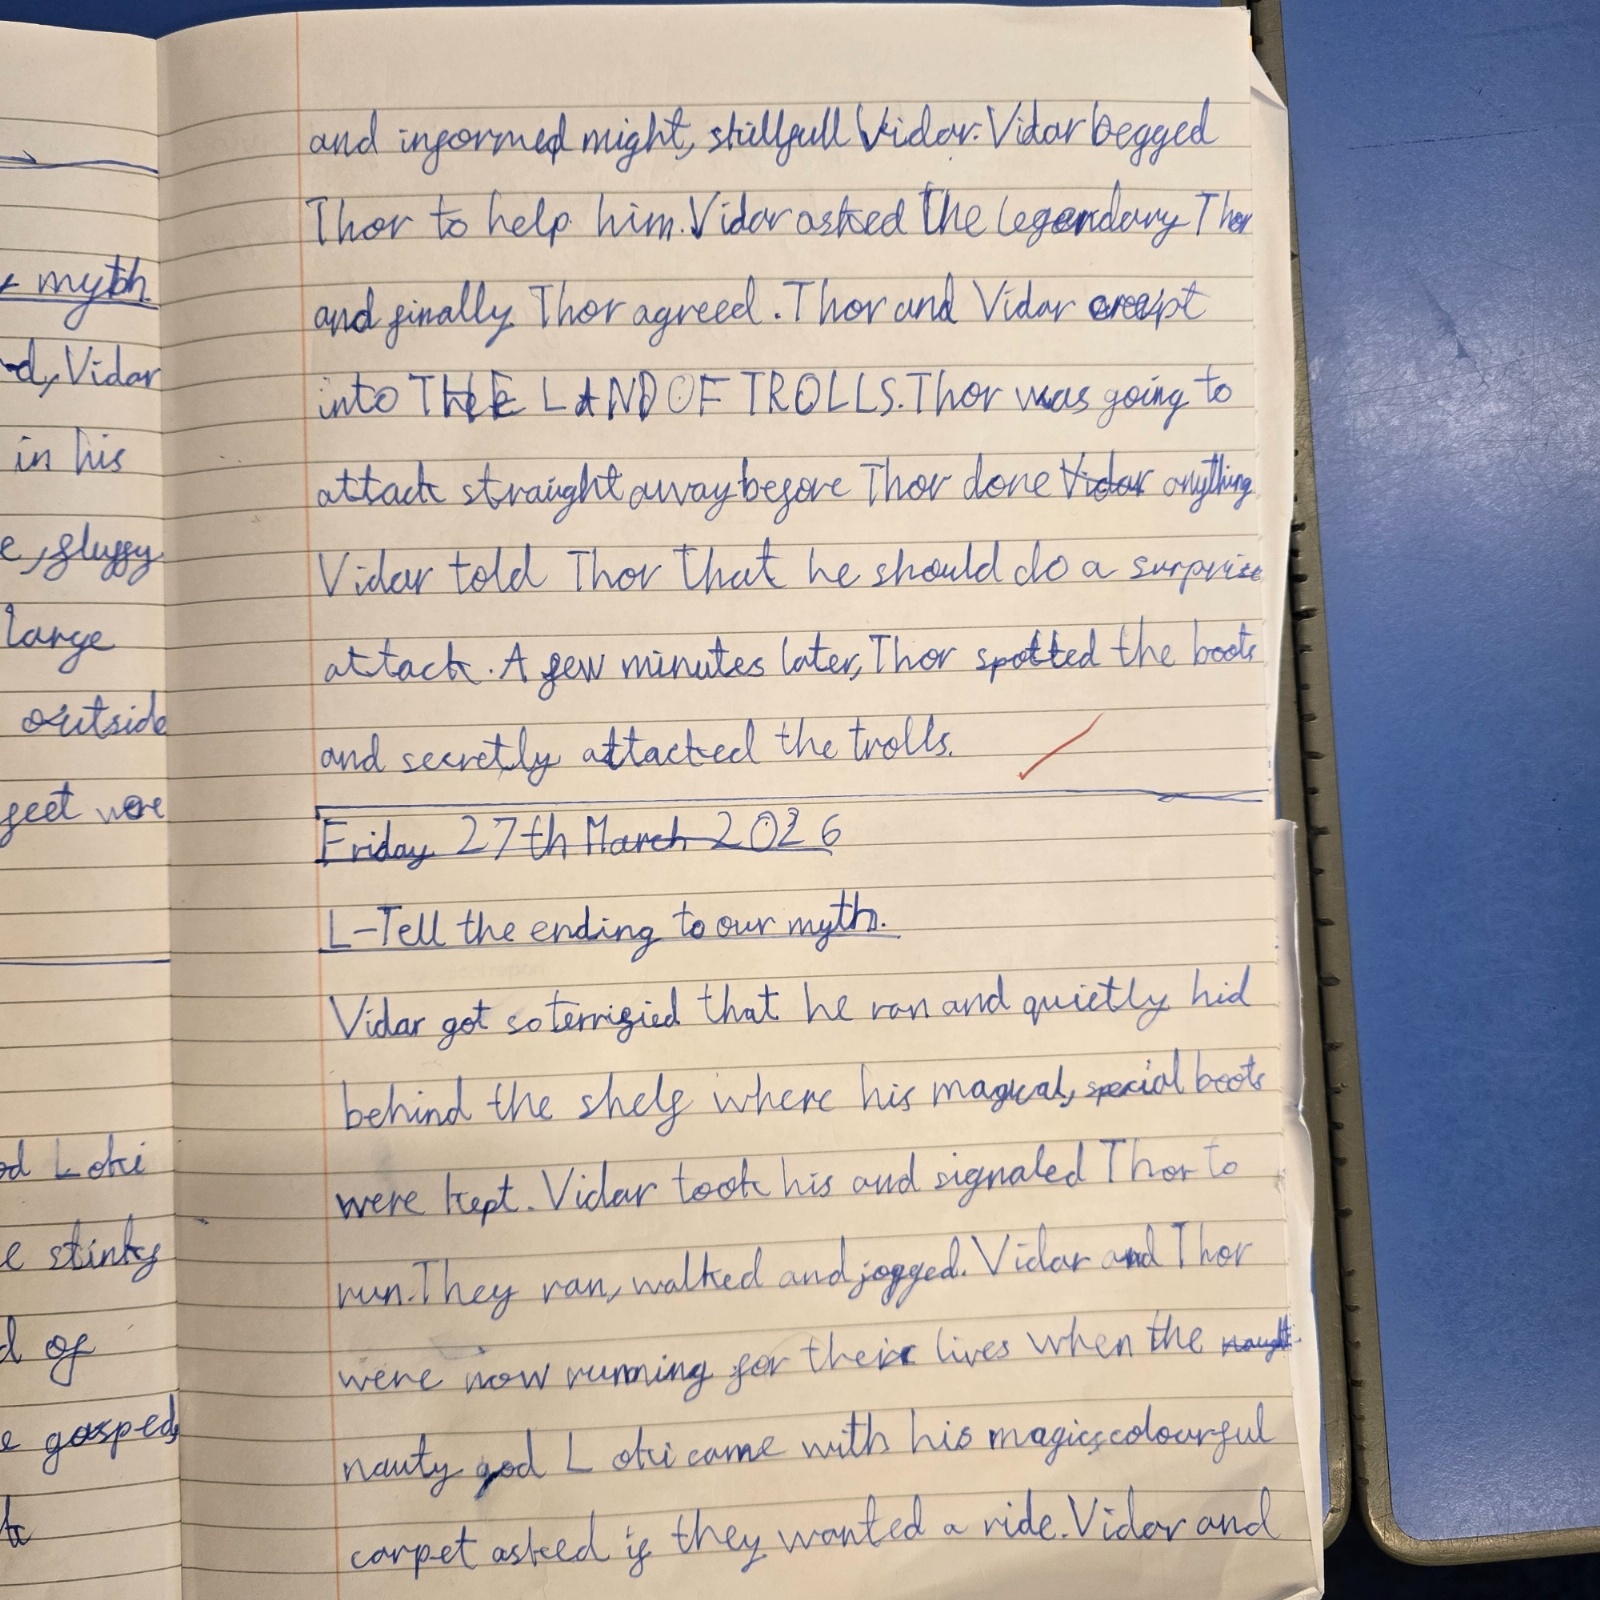 myth
d, Vidar
in his
e, fluffy
large
outside
feet were
od Loki
e stinky
d of
e gasped,
and informed might, skillfull Vidar. Vidar begged
Thor to help him. Vidar asked the legendary Thor
and finally Thor agreed. Thor and Vidar creept
into THE LAND OF TROLLS. Thor was going to
attack straught away before Thor done Vidar anything
Vidar told Thor that he should do a surprise
attack. A few minutes later, Thor spotted the boots
and secretly attacked the trolls.
Friday 27th March 2026
L-Tell the ending to our myth.
Vidar got so terrified that he ran and quietly hid
behind the shelf where his magical, special boots
were kept. Vidar took his and signaled Thor to
run. They ran, walked and jogged. Vidar and Thor
were now running for their lives when the
nauty god Loki came with his magic, colourful
carpet asked if they wanted a ride. Vidar and